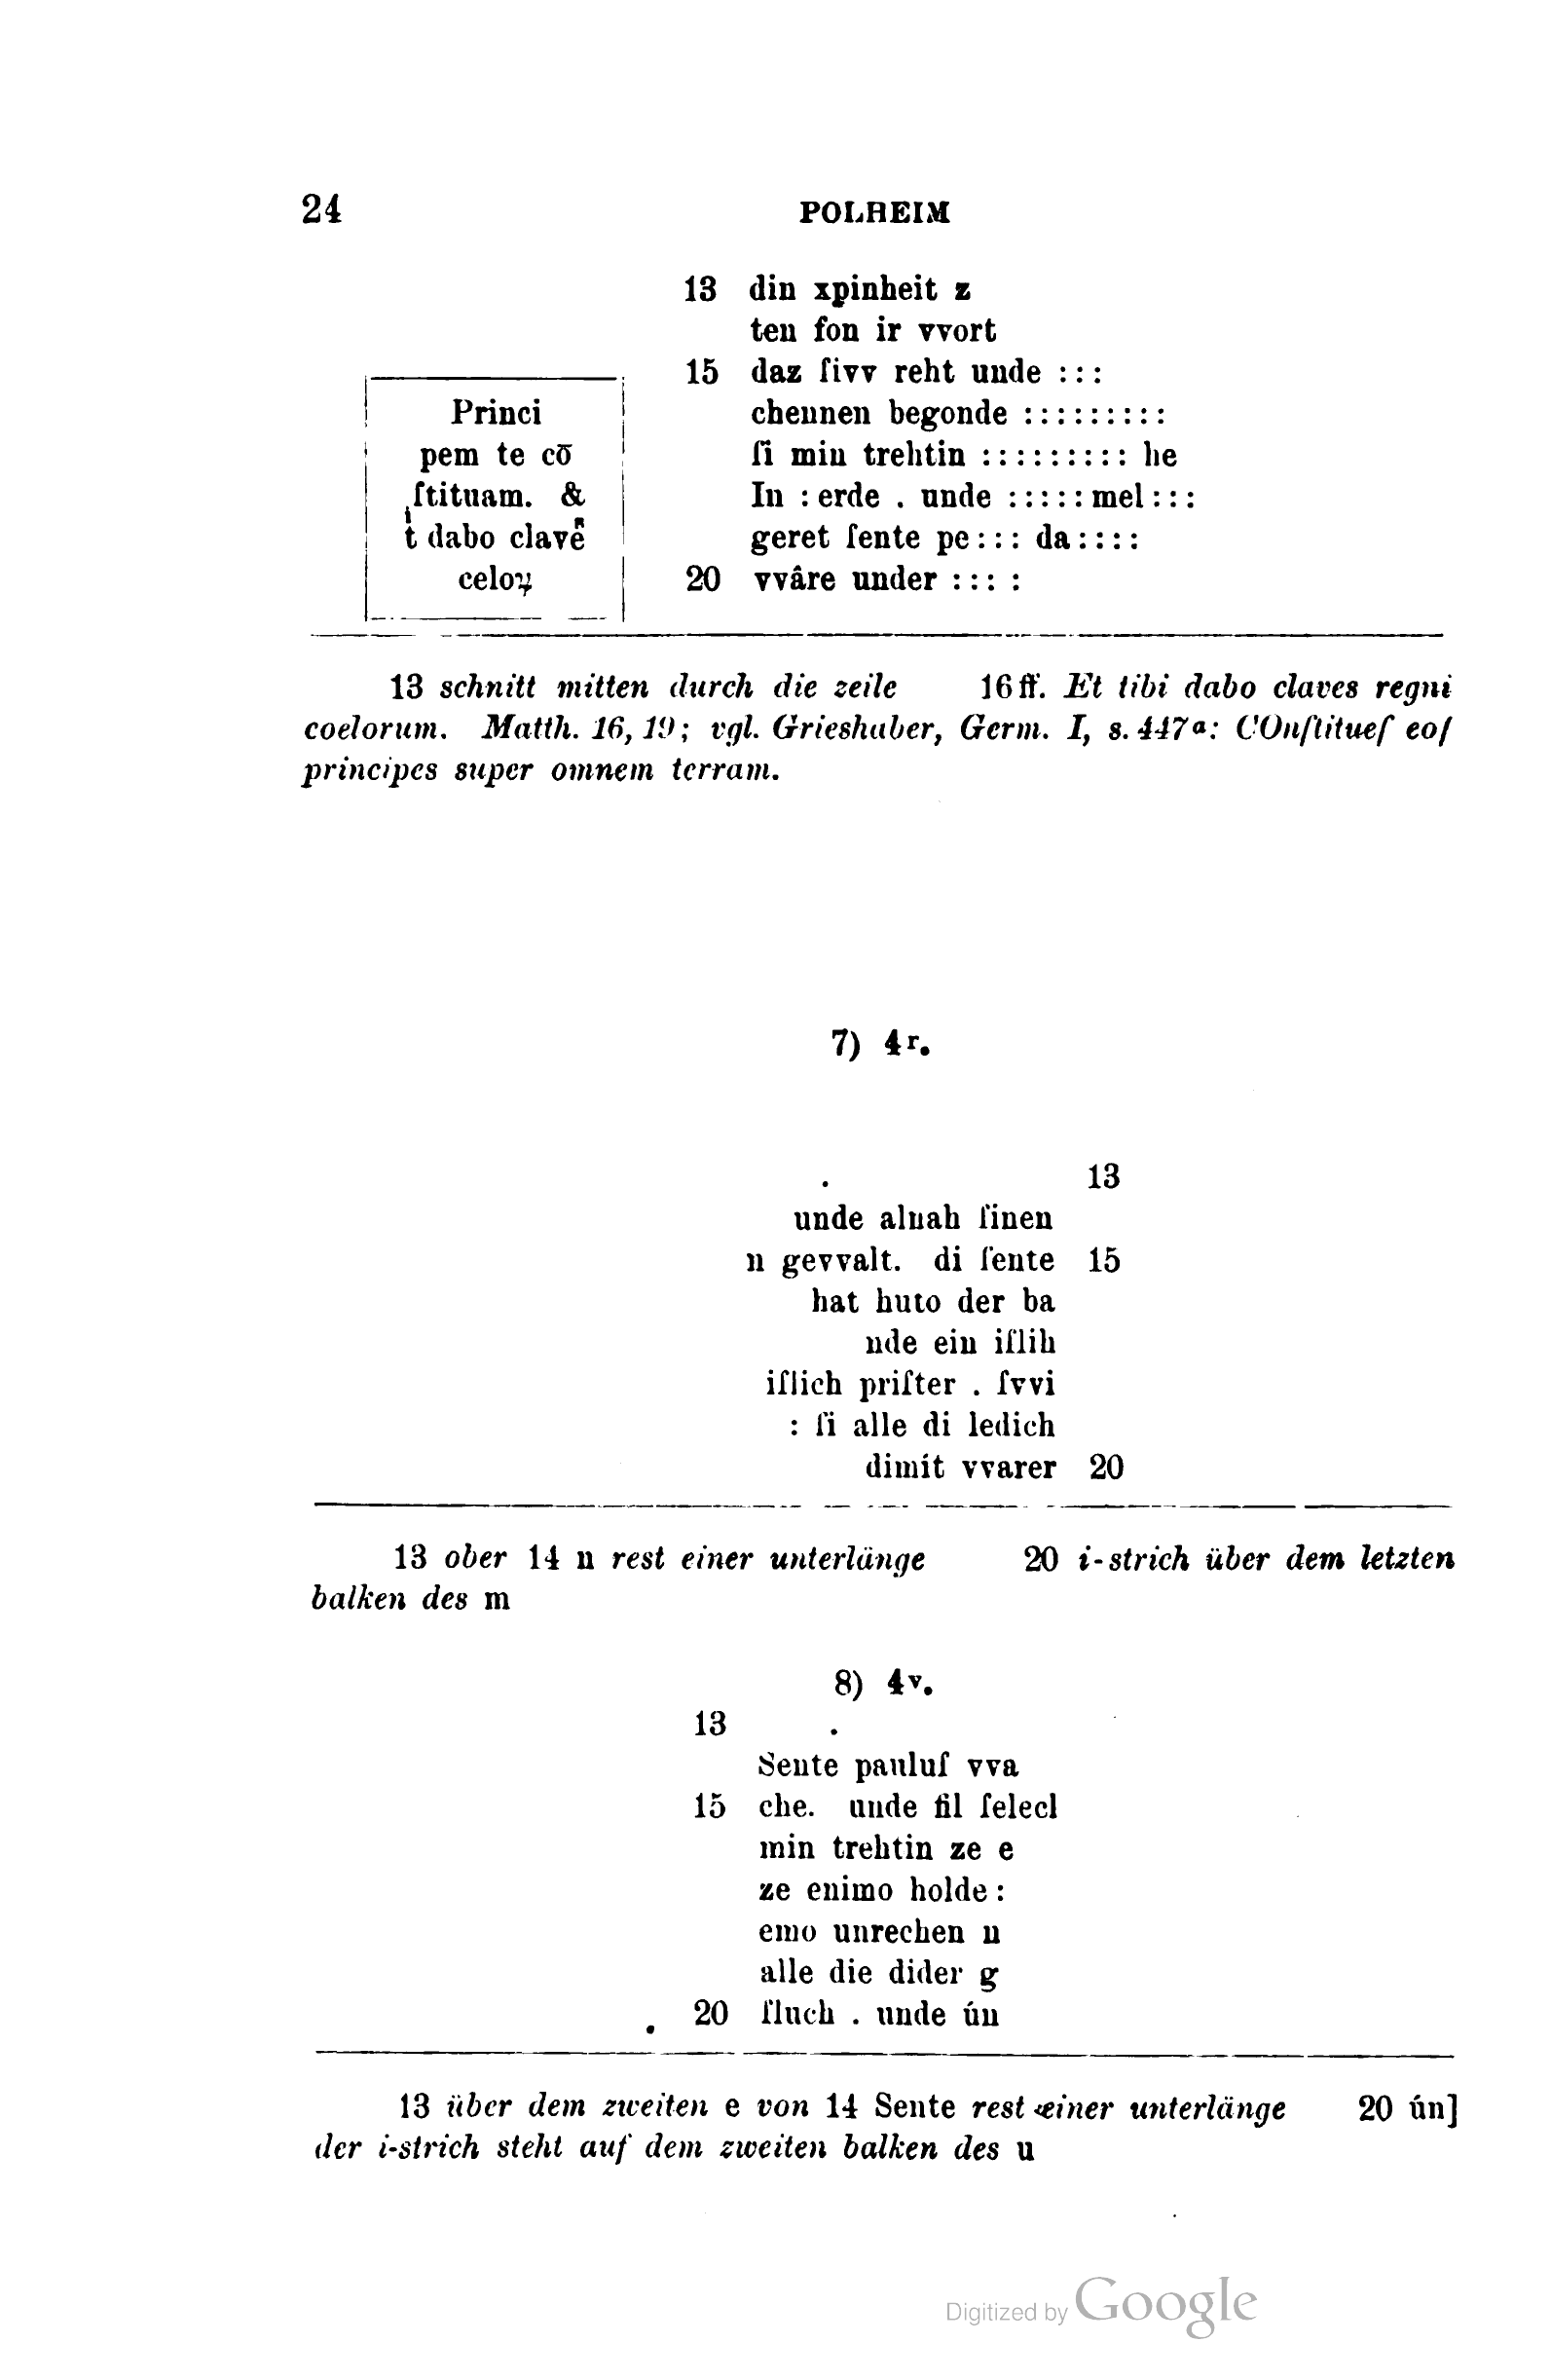 24 POLHEIM
13 din xpinheit z
ten fon ir vvort
15 daz ſivv reht unde : : :
chennen begonde : : : : : : : : :
ſi min trehtin : : : : : : : : : he
In : erde . unde : : : : : mel : : :
geret ſente pe : : : da : : : :
20 vvâre under : : : :
Princi
pem te cō
ſtituam. &
t dabo clavē
celoꝝ
13 schnitt mitten durch die zeile 16 ff. Et tibi dabo claves regni
coelorum. Matth. 16, 19; vgl. Grieshaber, Germ. I, s. 447a: COnſtitueſ eoſ
principes super omnem terram.
7) 4r.
. 13
unde alnah ſinen
n gevvalt. di ſente 15
hat huto der ba
nde ein iſlih
iſlich priſter . ſvvi
: ſi alle di ledich
dimít vvarer 20
13 ober 14 n rest einer unterlänge 20 i-strich über dem letzten
balken des m
8) 4v.
13 .
Sente pauluſ vva
15 che. unde fil ſelecl
min trehtin ze e
ze enimo holde :
emo unrechen u
alle die dider g
. 20 ſluch . unde ún
13 über dem zweiten e von 14 Sente rest einer unterlänge 20 ún]
der i-strich steht auf dem zweiten balken des u
Digitized by Google